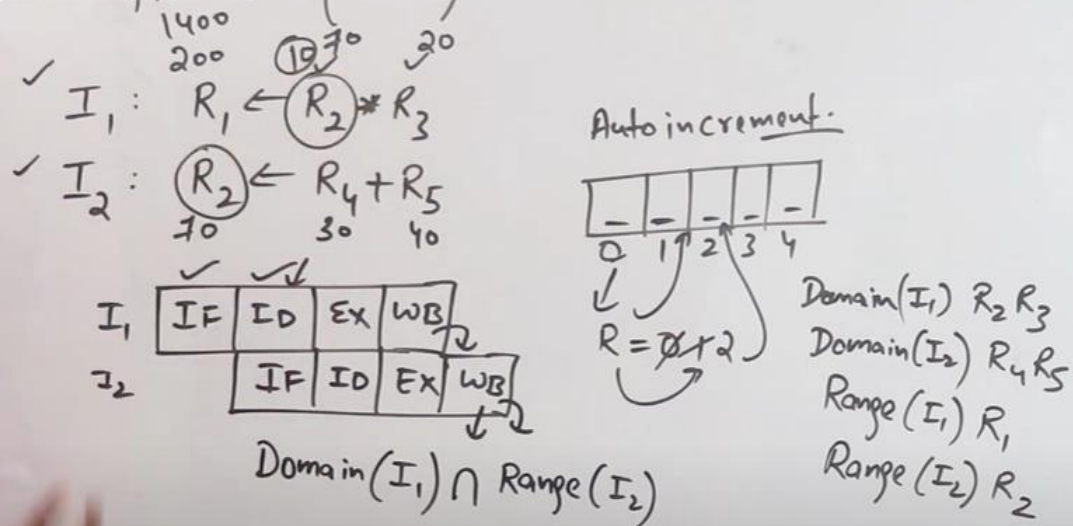 1400
200 10 70 20
✓ I₁ : R₁ ← R₂ * R₃
✓ I₂ : R₂ ← R₄ + R₅
70 30 40
✓ ✓
I₁ IF ID EX WB
I₂ IF ID EX WB
Domain(I₁) ∩ Range(I₂)
Autoincrement.
_ _ _ _ _
0 1 2 3 4
R = 0 1 2
Domain(I₁) R₂ R₃
Domain(I₂) R₄ R₅
Range(I₁) R₁
Range(I₂) R₂